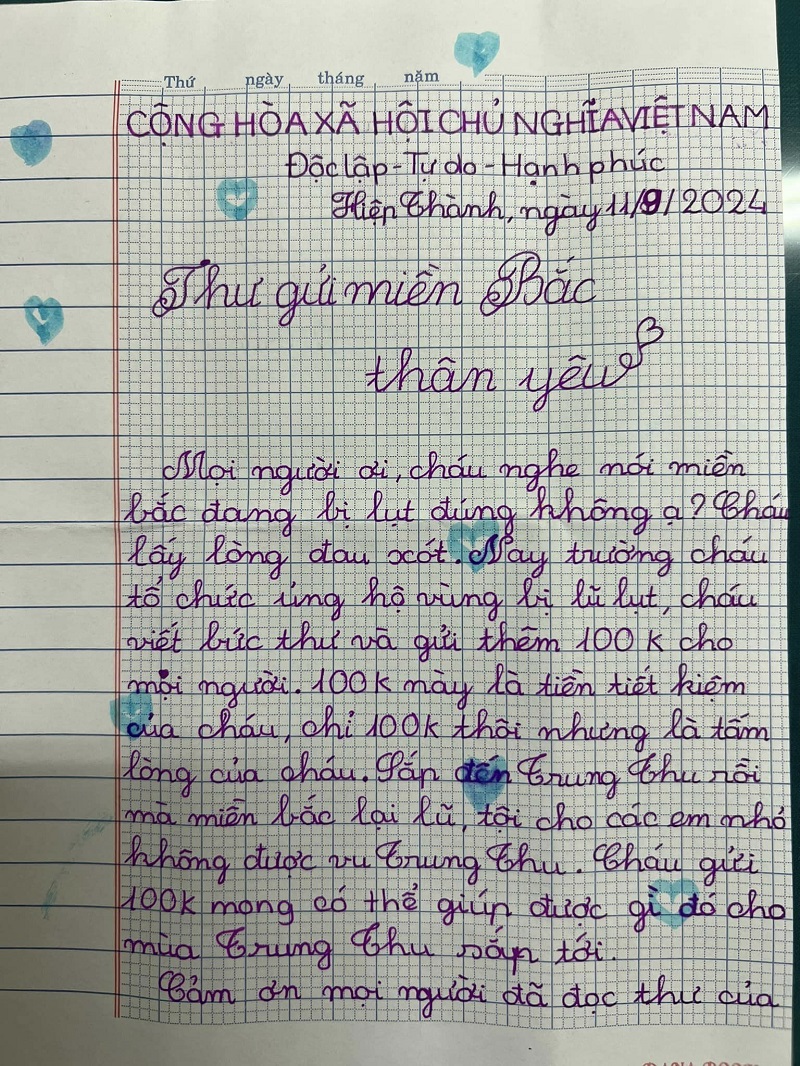 Thứ ngày tháng năm
CỘNG HÒA XÃ HỘI CHỦ NGHĨA VIỆT NAM
Độc lập - Tự do - Hạnh phúc
Hiệp Thành, ngày 11/9/2024
Thư gửi miền Bắc
thân yêu
Mọi người ơi, cháu nghe nói miền
bắc đang bị lụt đúng không ạ? Cháu
lấy lòng đau xót. Nay trường cháu
tổ chức ủng hộ vùng bị lũ lụt, cháu
viết bức thư và gửi thêm 100K cho
mọi người. 100K này là tiền tiết kiệm
của cháu, chỉ 100K thôi nhưng là tấm
lòng của cháu. Sắp đến Trung Thu rồi
mà miền bắc lại lũ, tội cho các em nhỏ
không được vu Trung Thu. Cháu gửi
100K mong có thể giúp được gì đó cho
mùa Trung Thu sắp tới.
Cảm ơn mọi người đã đọc thư của